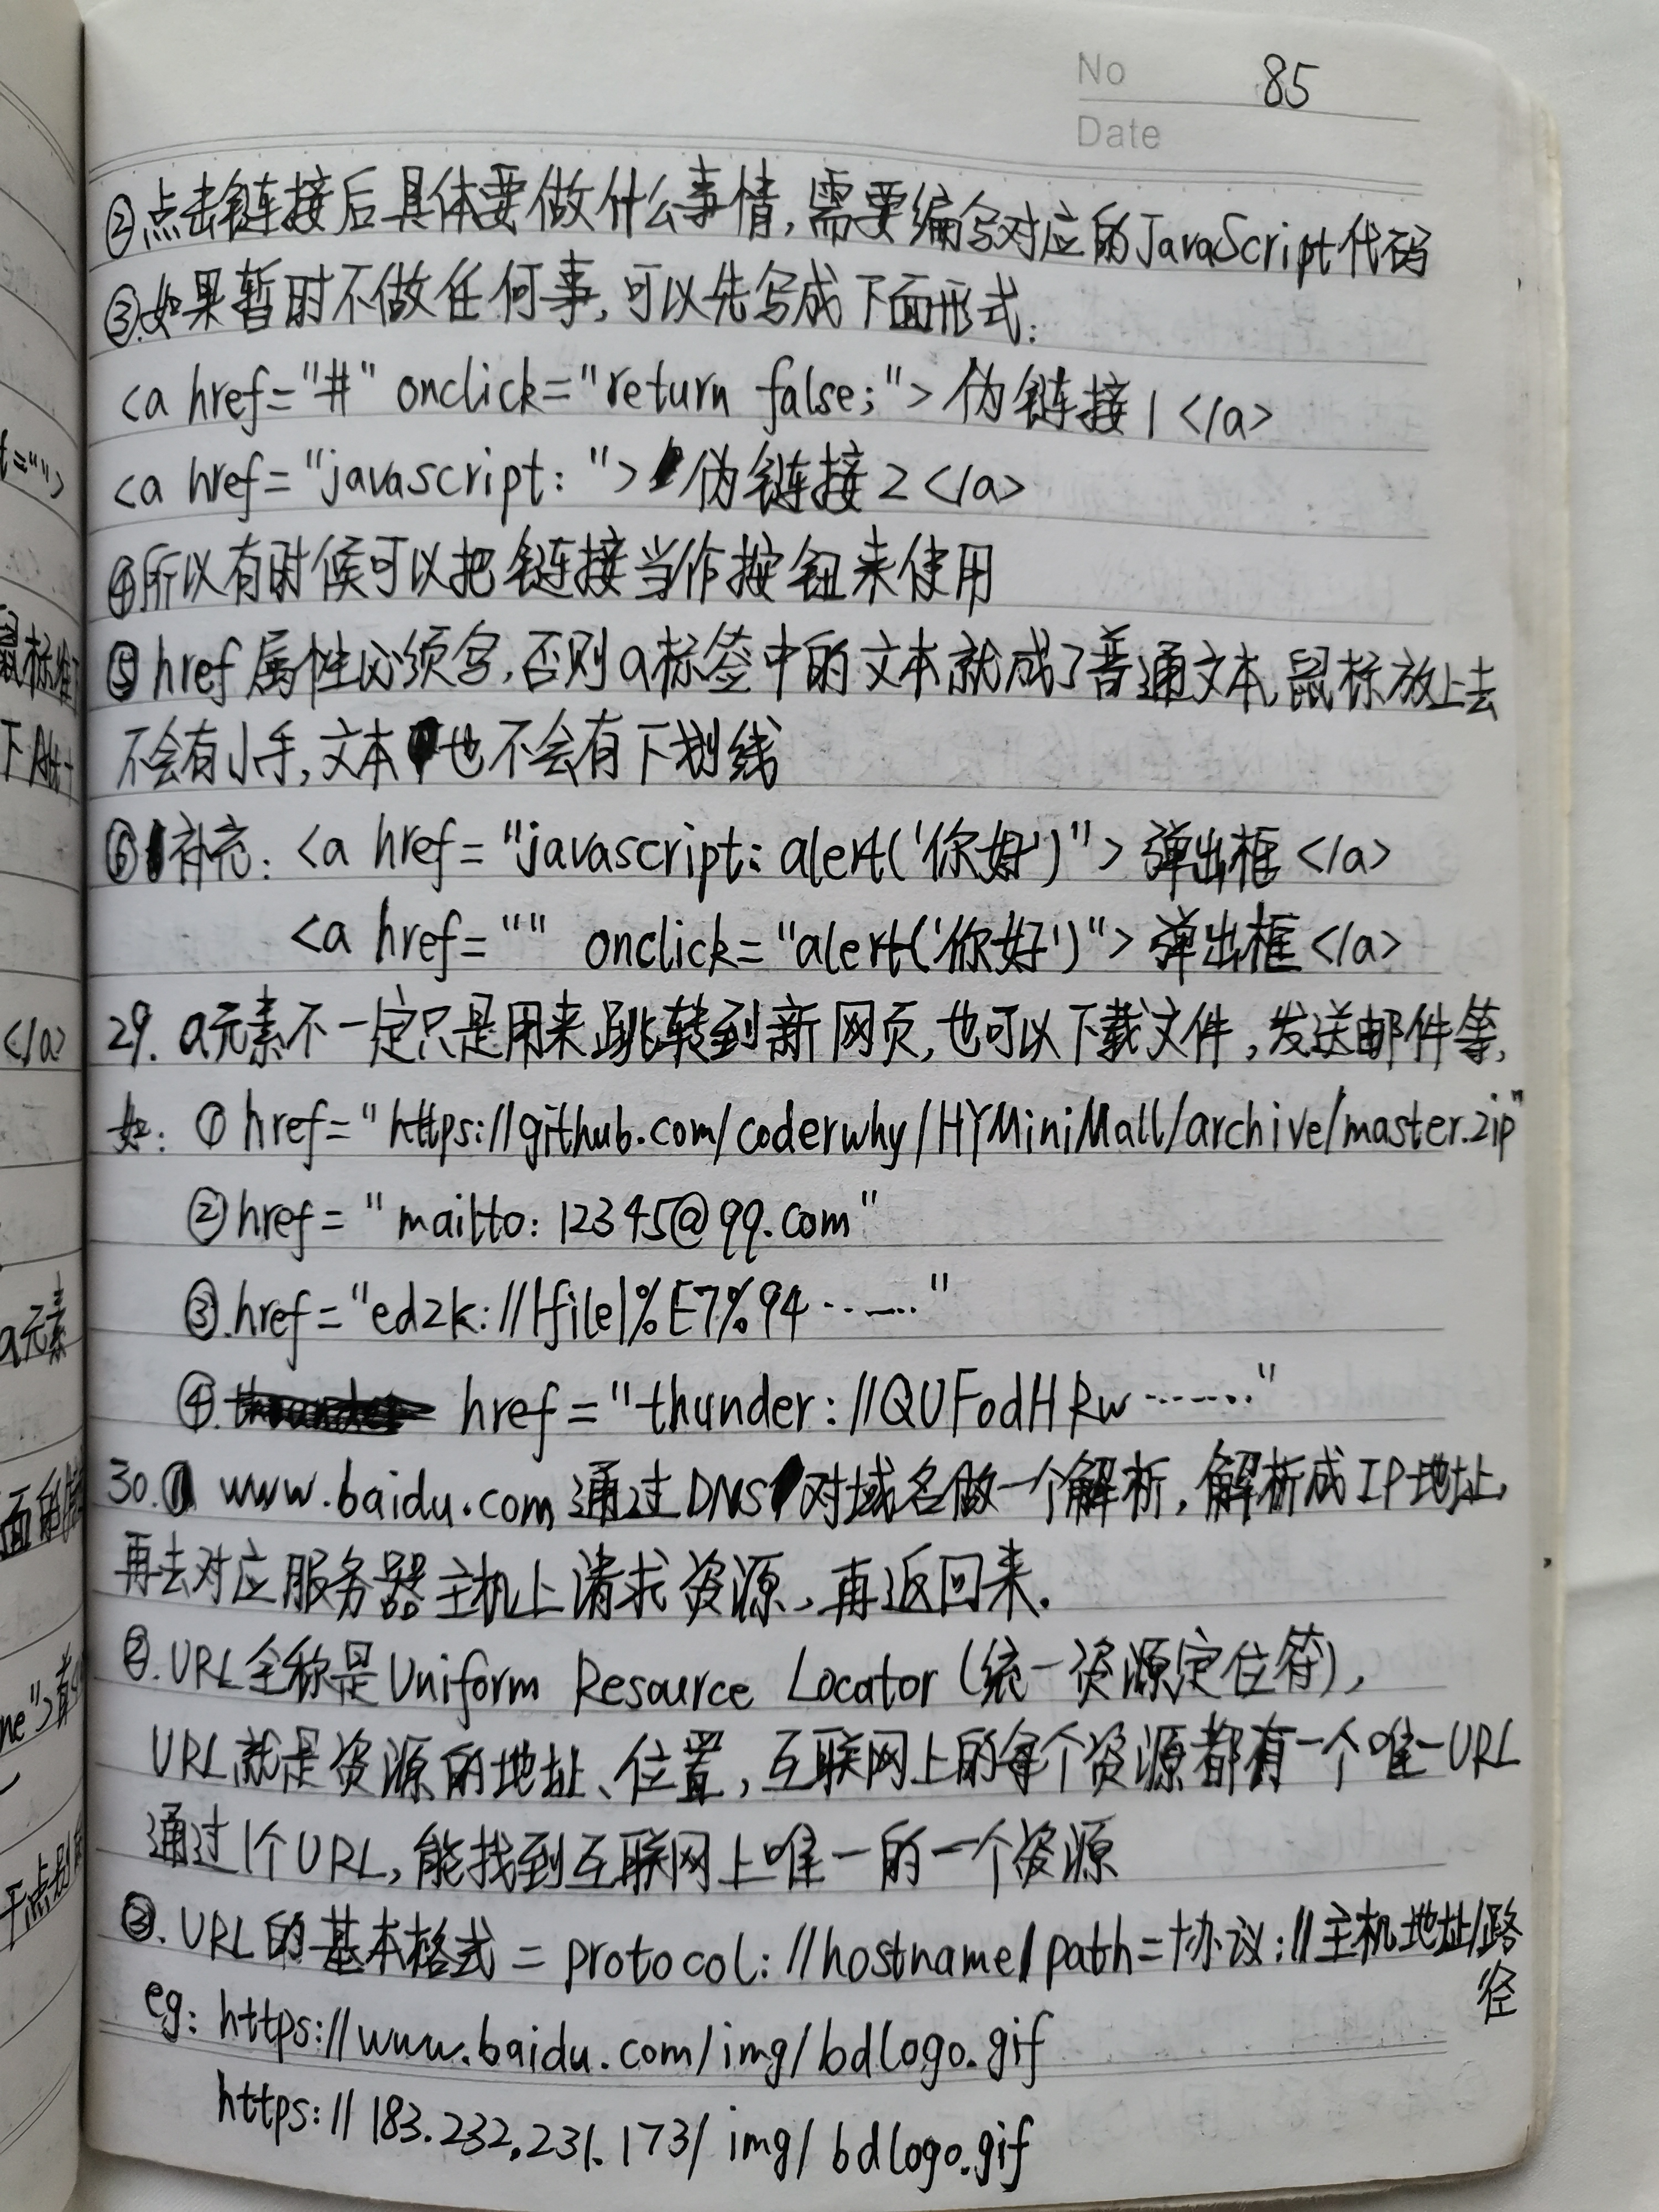 No 85
Date
②点击链接后具体要做什么事情,需要编写对应的JavaScript代码
③.如果暂时不做任何事,可以先写成下面形式:
<a href="#" onclick="return false;">伪链接1</a>
<a href="javascript: ">伪链接2</a>
④所以有时候可以把链接当作按钮来使用
⑤href属性必须写,否则a标签中的文本就成了普通文本,鼠标放上去
不会有小手,文本也不会有下划线
⑥补充: <a href="javascript: alert('你好')">弹出框</a>
<a href="" onclick="alert('你好')">弹出框</a>
29. a元素不一定只是用来跳转到新网页,也可以下载文件,发送邮件等,
如: ① href="https://github.com/coderwhy/HYMiniMall/archive/master.zip"
②href="mailto: 12345@qq.com"
③.href="ed2k://|file|%E7%94……"
④. href="thunder://QUFodHRw……"
30.① www.baidu.com通过DNS对域名做一个解析,解析成IP地址,
再去对应服务器主机上请求资源,再返回来.
②.URL全称是Uniform Resource Locator(统一资源定位符),
URL就是资源的地址、位置,互联网上的每个资源都有一个唯一URL
通过1个URL,能找到互联网上唯一的一个资源
③.URL的基本格式=protocol://hostname/path=协议://主机地址/路
径
eg: https://www.baidu.com/img/bdlogo.gif
https://183.232.231.173/img/bdlogo.gif
t="">
鼠标
</a>
a元素